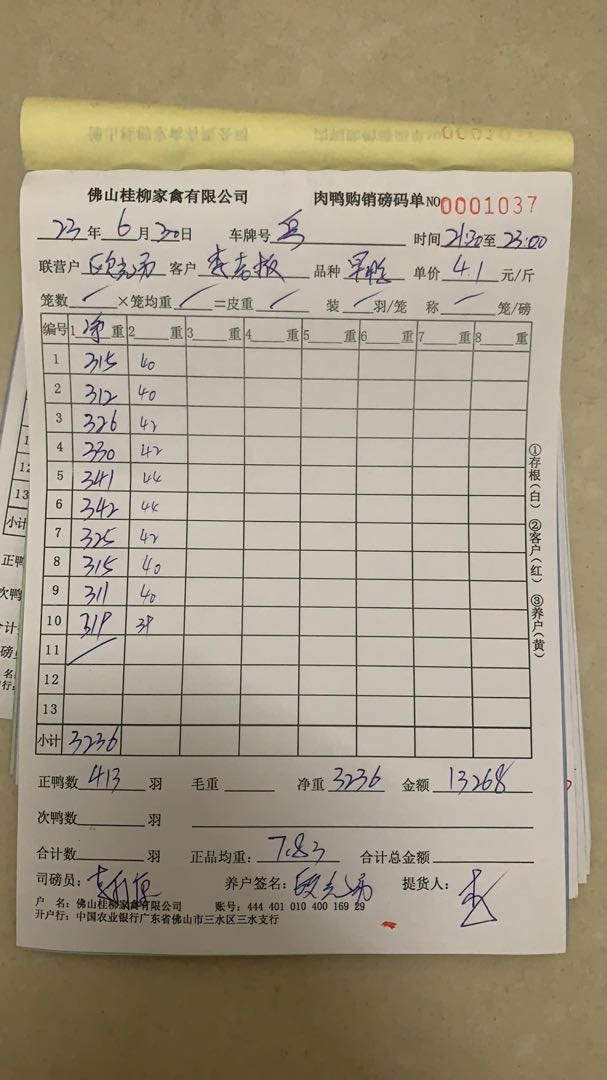 佛山桂柳家禽有限公司 肉鸭购销磅码单 NO 0001037
23年6月30日 车牌号 时间21:30至23:00
联营户 客户 李吉振 品种 单价 4.1 元/斤
笼数 ×笼均重 =皮重 装 羽/笼 称 笼/磅
编号 1 净 重 2 重 3 重 4 重 5 重 6 重 7 重 8 重
1 315 40
2 312 40
3 326 42
4 330 42
5 341 44
6 342 44
7 325 42
8 315 40
9 311 40
10 319 39
11
12
13
小计 3236
①存根(白) ②客户(红) ③养户(黄)
正鸭数 413 羽 毛重 净重 3236 金额 13268
次鸭数 羽
合计数 羽 正品均重: 7.83 合计总金额
司磅员: 养户签名: 提货人: 李
户 名: 佛山桂柳家禽有限公司 账号: 444 401 010 400 169 29
开户行: 中国农业银行广东省佛山市三水区三水支行